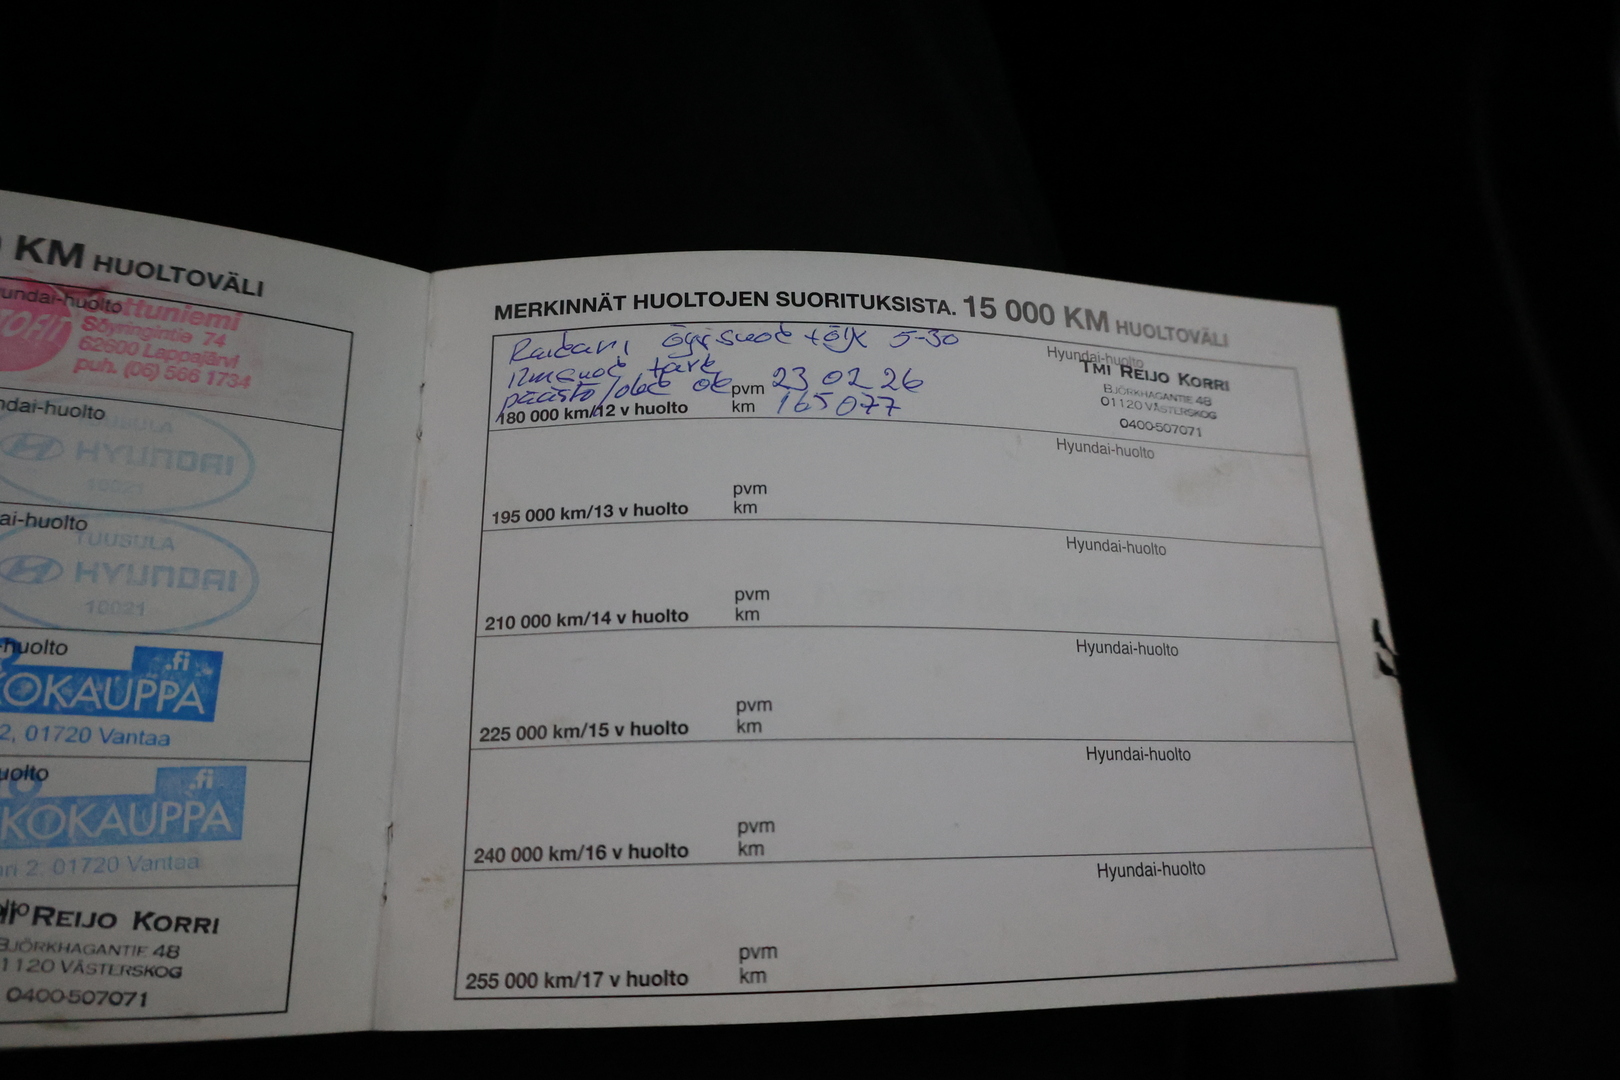 KM HUOLTOVÄLI
undai-huolto
ttuniemi
OFIT
Söyringintie 74
62600 Lappajärvi
puh. (06) 566 1734
ndai-huolto
TUUSULA
HYUNDAI
10021
ai-huolto
TUUSULA
HYUNDAI
10021
-huolto
.fi
OKAUPPA
2, 01720 Vantaa
uolto
.fi
KOKAUPPA
ri 2, 01720 Vantaa
REIJO KORRI
BJÖRKHAGANTIE 48
1120 VÄSTERSKOG
0400-507071
MERKINNÄT HUOLTOJEN SUORITUKSISTA. 15 000 KM HUOLTOVÄLI
öljysuod + öljy 5-30
ilmansuod tark
päästö/obd ok
pvm 23 02 26
180 000 km/12 v huolto
km 165077
Hyundai-huolto
TMI REIJO KORRI
BJÖRKHAGANTIE 48
01120 VÄSTERSKOG
0400-507071
Hyundai-huolto
pvm
195 000 km/13 v huolto
km
Hyundai-huolto
pvm
210 000 km/14 v huolto
km
Hyundai-huolto
pvm
225 000 km/15 v huolto
km
Hyundai-huolto
pvm
240 000 km/16 v huolto
km
Hyundai-huolto
pvm
255 000 km/17 v huolto
km